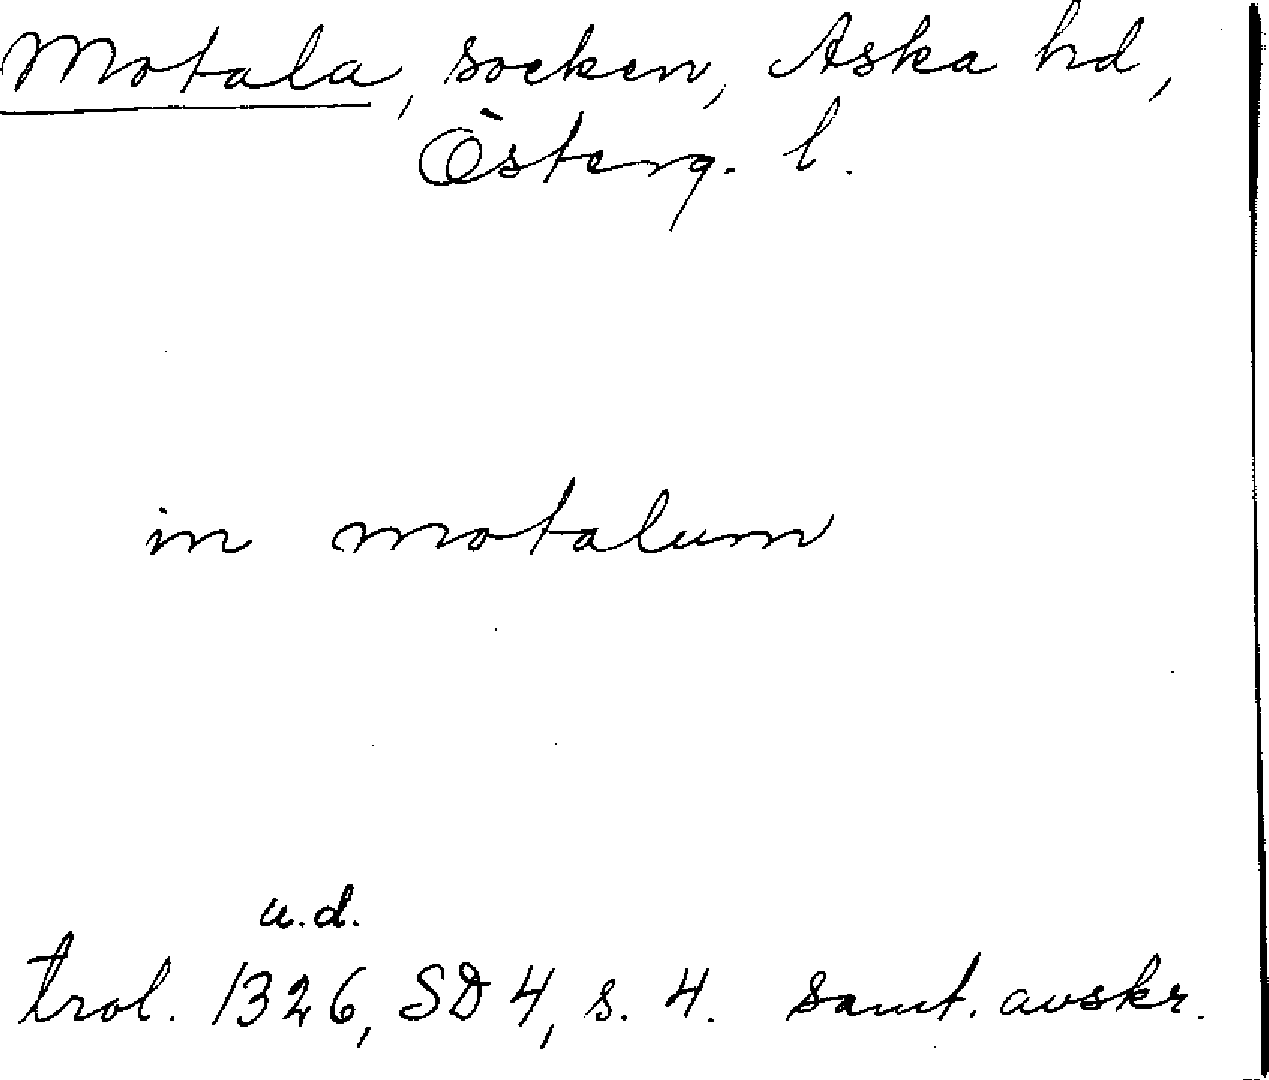 Motala, socken, Aska hd,
Österg. l.
in motalum
u.d.
trol. 1326, SD 4, s. 4. samt. avskr.